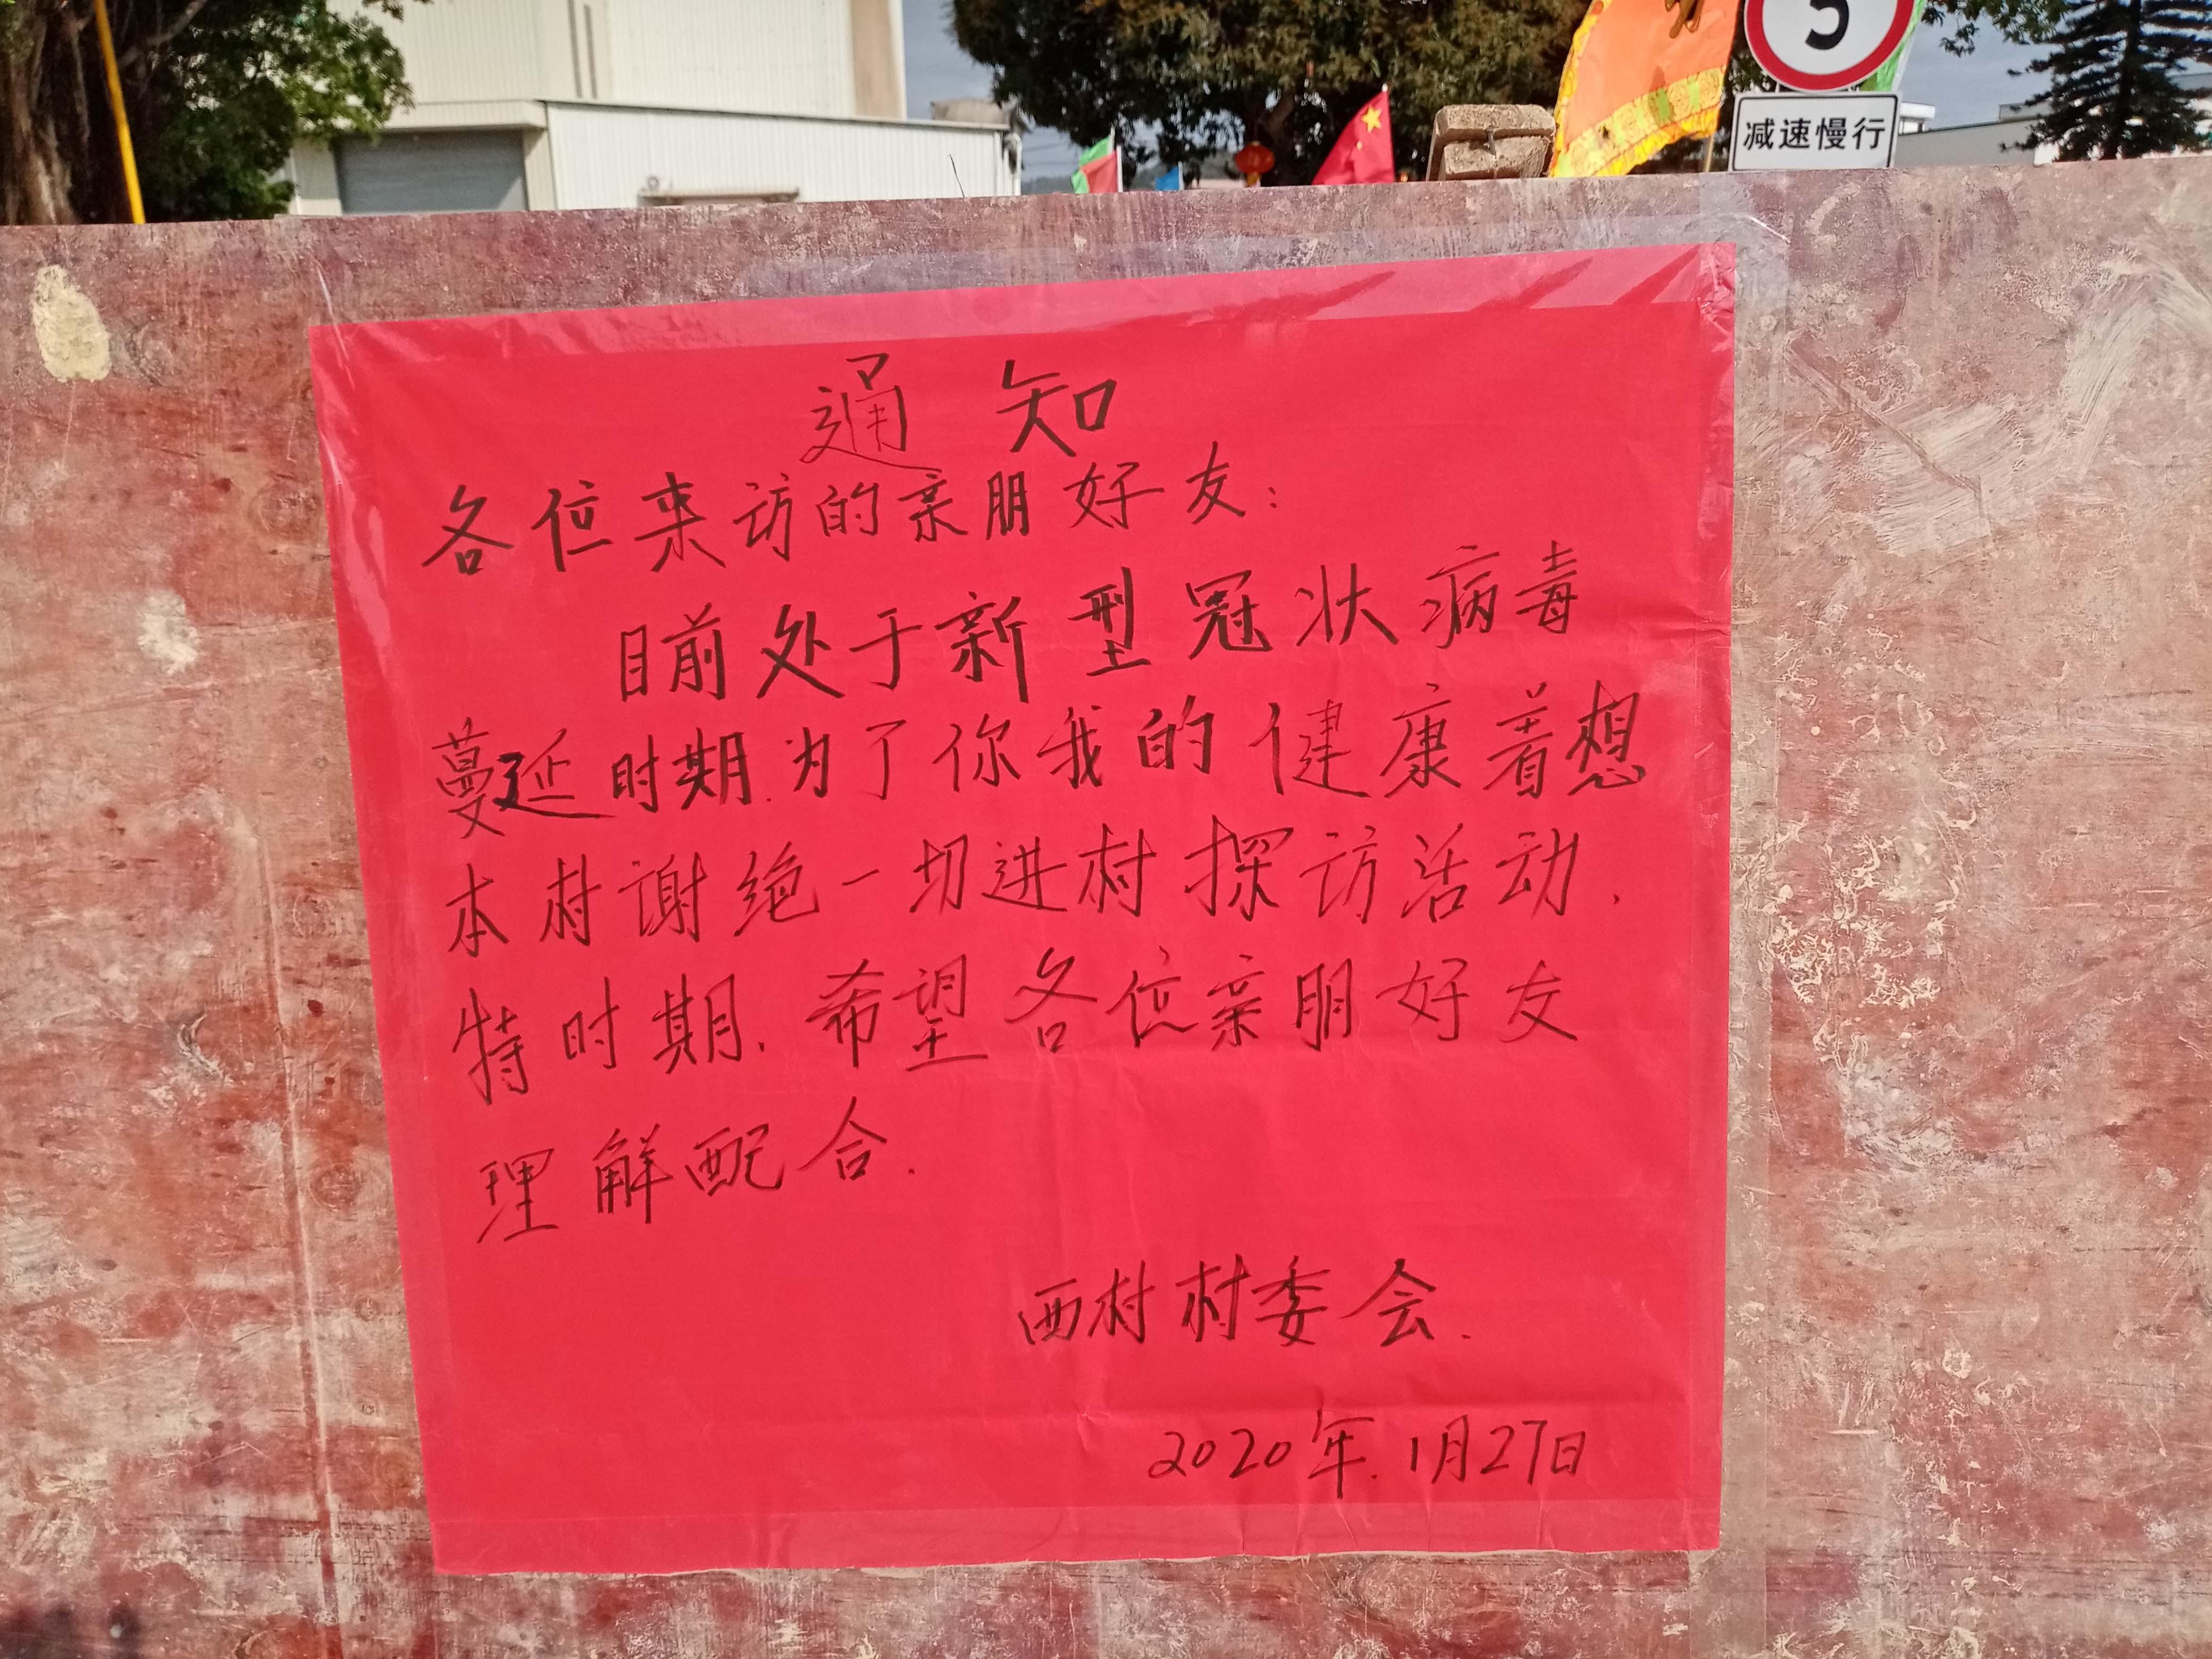 5
减速慢行
通知
各位来访的亲朋好友:
目前处于新型冠状病毒
蔓延时期.为了你我的健康着想
本村谢绝一切进村探访活动.
特时期.希望各位亲朋好友
理解配合.
西村村委会.
2020年.1月27日